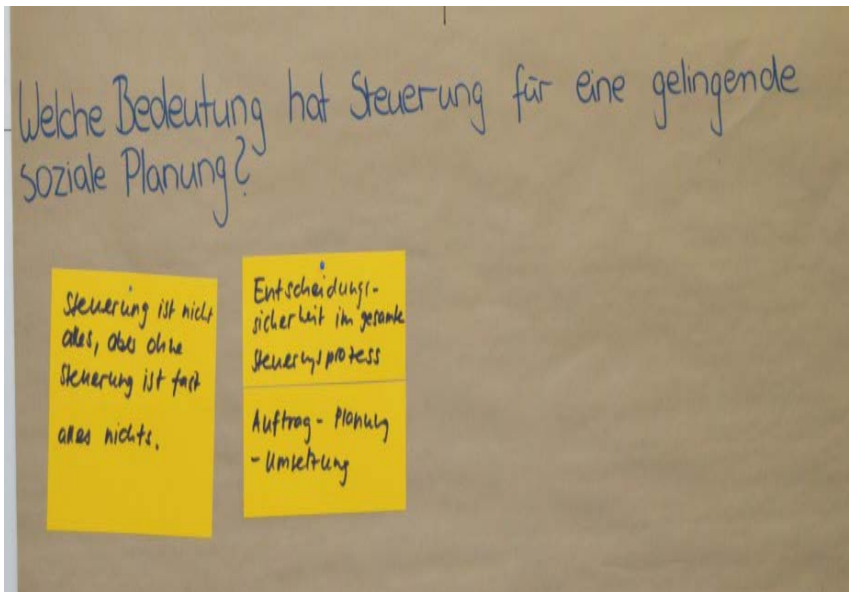 Welche Bedeutung hat Steuerung für eine gelingende
soziale Planung?
Steuerung ist nicht
alles, aber ohne
Steuerung ist fast
alles nichts.
Entscheidungs-
sicherheit im gesamte
Steuerungsprozess
Auftrag - Planung
- Umsetzung